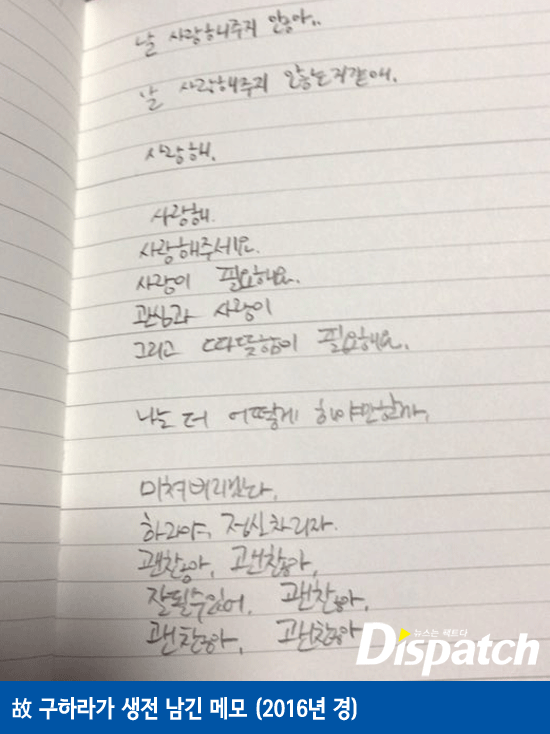 날 사랑해주지 않아..
날 사랑해주지 않는거같애.
사랑해.
사랑해.
사랑해주세요.
사랑이 필요해요.
관심과 사랑이
그리고 따뜻함이 필요해요.
나는 더 어떻게 해야만할까.
미쳐버리겠다.
하라야, 정신차리자.
괜찮아, 괜찮아,
잘될수있어, 괜찮아,
괜찮아, 괜찮아
뉴스는 팩트다
Dispatch
故 구하라가 생전 남긴 메모 (2016년 경)